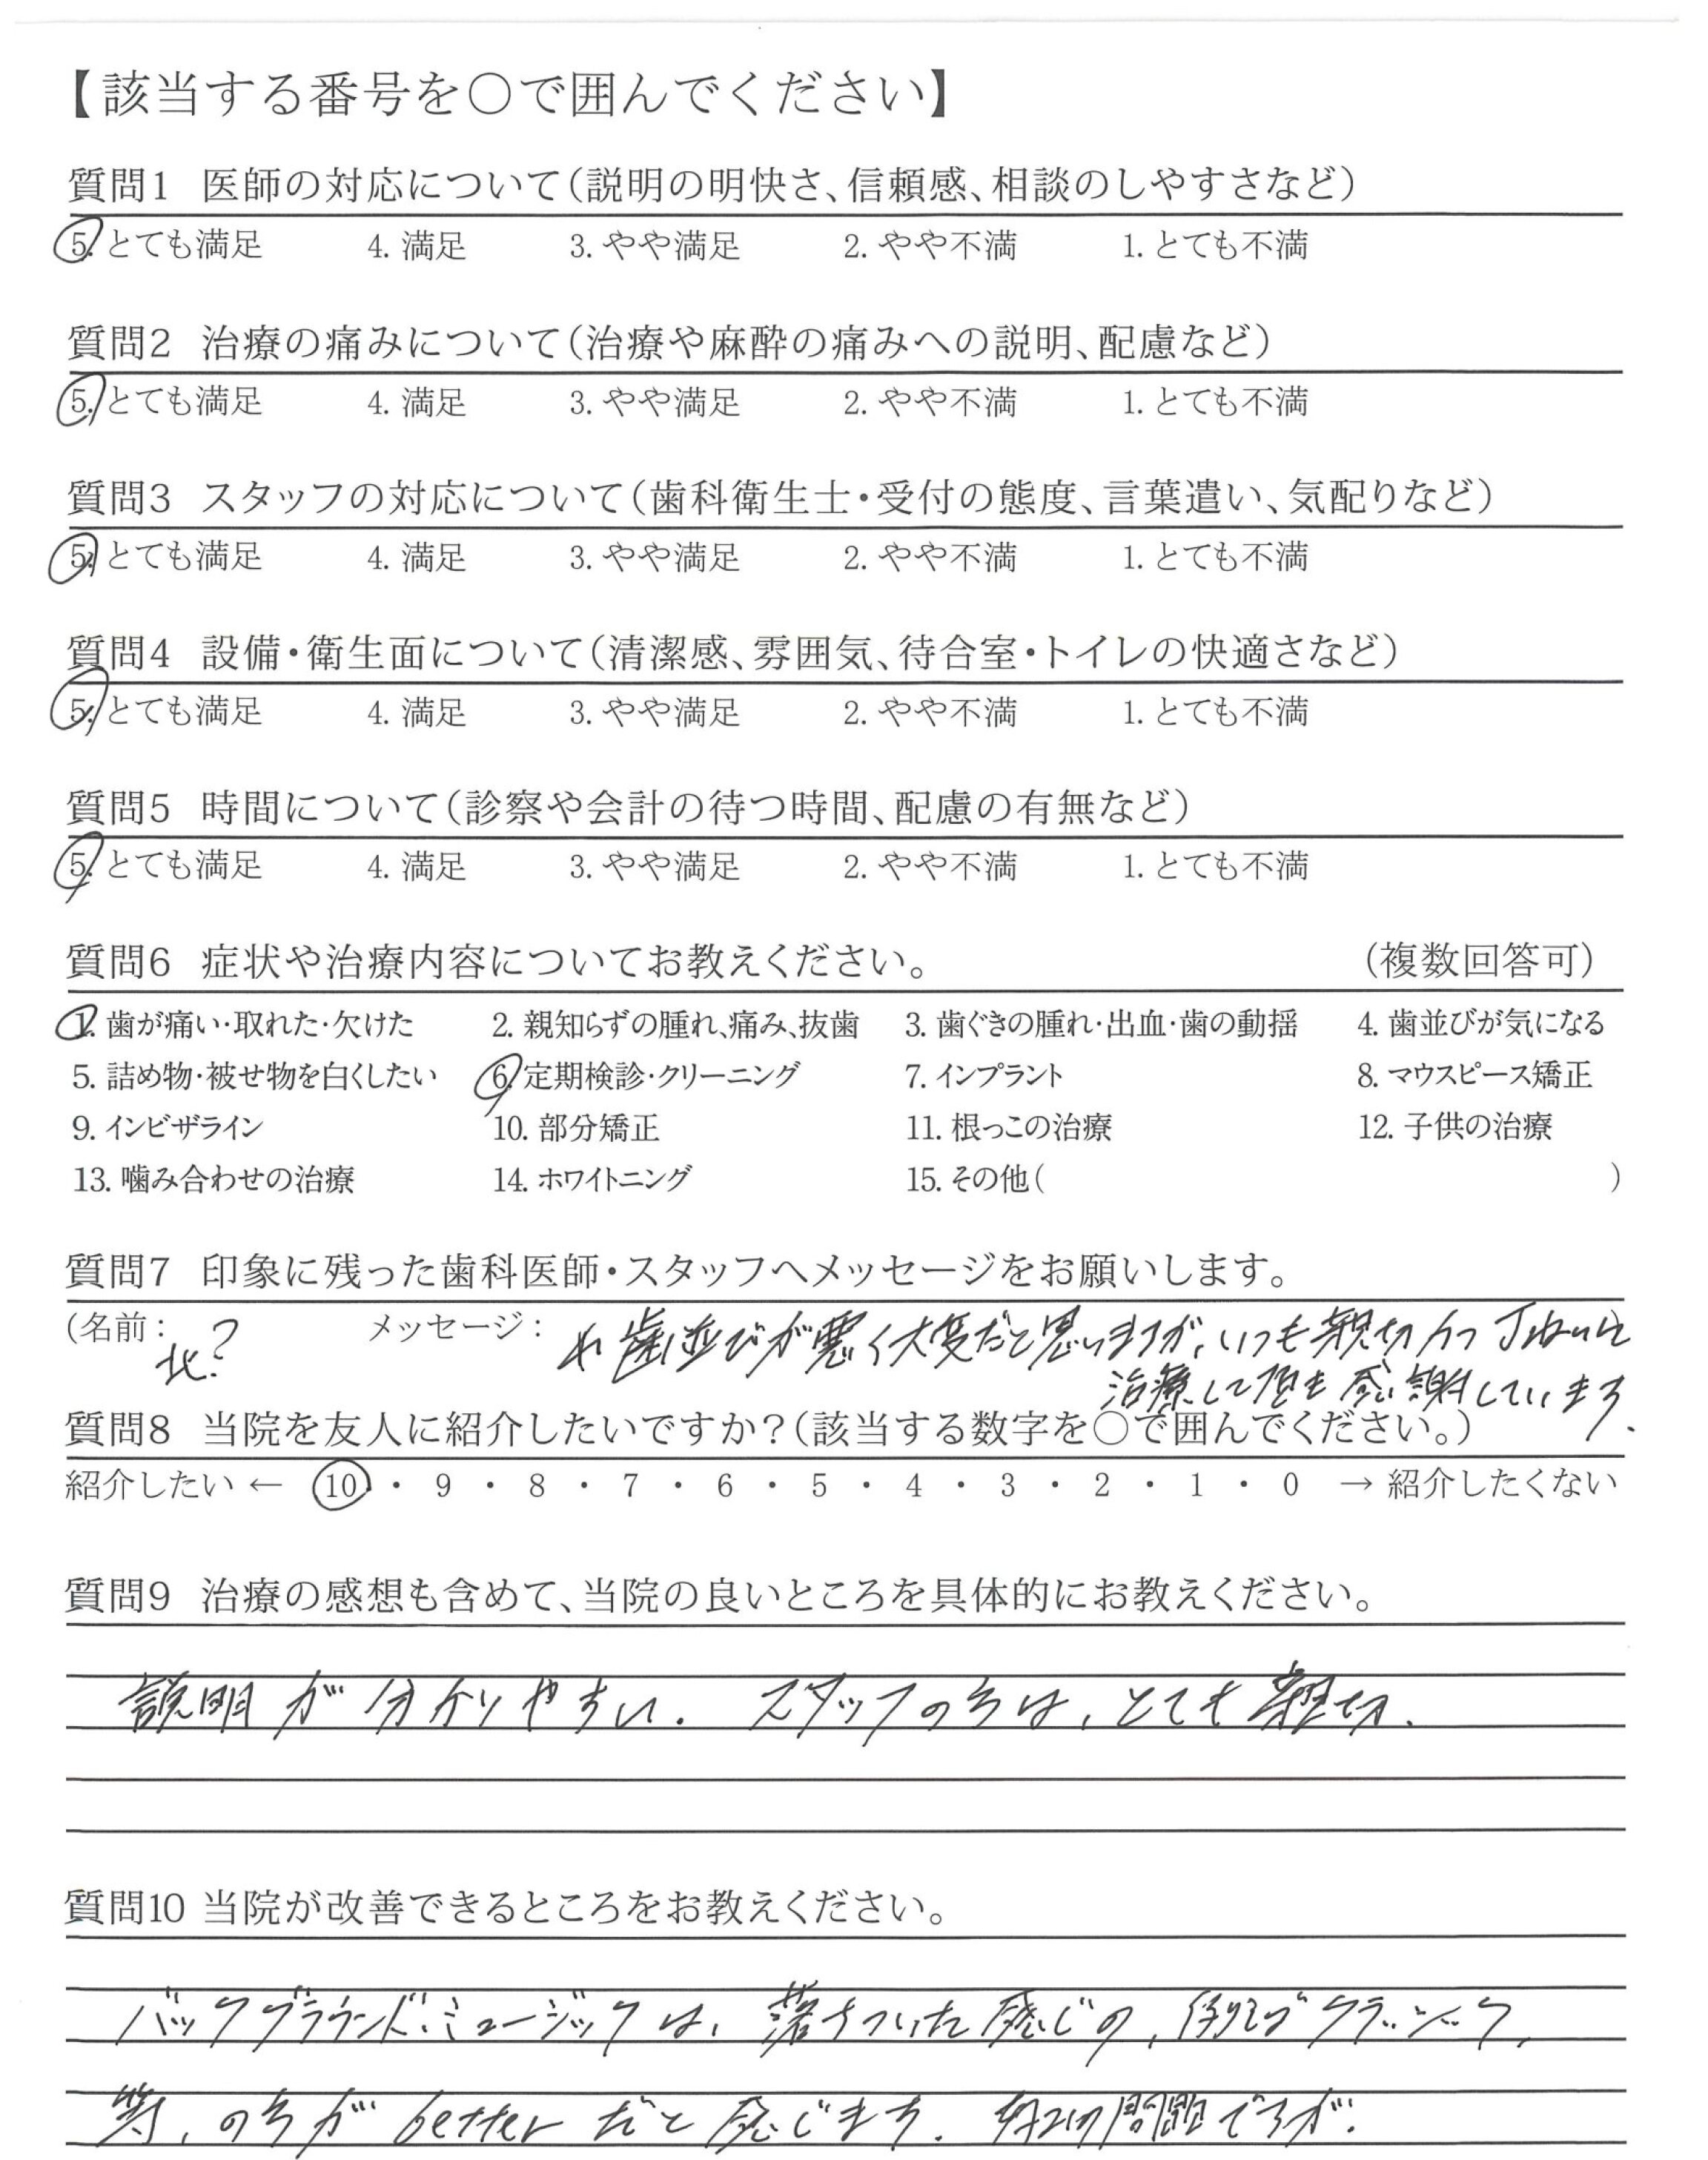 【該当する番号を○で囲んでください】
質問1 医師の対応について(説明の明快さ、信頼感、相談のしやすさなど)
5. とても満足 4. 満足 3. やや満足 2. やや不満 1. とても不満
質問2 治療の痛みについて(治療や麻酔の痛みへの説明、配慮など)
5. とても満足 4. 満足 3. やや満足 2. やや不満 1. とても不満
質問3 スタッフの対応について(歯科衛生士・受付の態度、言葉遣い、気配りなど)
5. とても満足 4. 満足 3. やや満足 2. やや不満 1. とても不満
質問4 設備・衛生面について(清潔感、雰囲気、待合室・トイレの快適さなど)
5. とても満足 4. 満足 3. やや満足 2. やや不満 1. とても不満
質問5 時間について(診察や会計の待つ時間、配慮の有無など)
5. とても満足 4. 満足 3. やや満足 2. やや不満 1. とても不満
質問6 症状や治療内容についてお教えください。 (複数回答可)
1. 歯が痛い・取れた・欠けた 2. 親知らずの腫れ、痛み、抜歯 3. 歯ぐきの腫れ・出血・歯の動揺 4. 歯並びが気になる
5. 詰め物・被せ物を白くしたい 6. 定期検診・クリーニング 7. インプラント 8. マウスピース矯正
9. インビザライン 10. 部分矯正 11. 根っこの治療 12. 子供の治療
13. 噛み合わせの治療 14. ホワイトニング 15. その他( )
質問7 印象に残った歯科医師・スタッフへメッセージをお願いします。
(名前: 北? メッセージ: 歯並びが悪く大変だと思いますが、いつも親切かつ丁ねいに
治療して頂き感謝しています.
質問8 当院を友人に紹介したいですか?(該当する数字を○で囲んでください。)
紹介したい ← 10 ・ 9 ・ 8 ・ 7 ・ 6 ・ 5 ・ 4 ・ 3 ・ 2 ・ 1 ・ 0 → 紹介したくない
質問9 治療の感想も含めて、当院の良いところを具体的にお教えください。
説明が分かりやすい. スタッフの方は、とても親切.
質問10 当院が改善できるところをお教えください。
バックグラウンド・ミュージックは、落ちついた感じの、例えばクラシック、
等、の方がbetterだと感じます. 問題ですが.